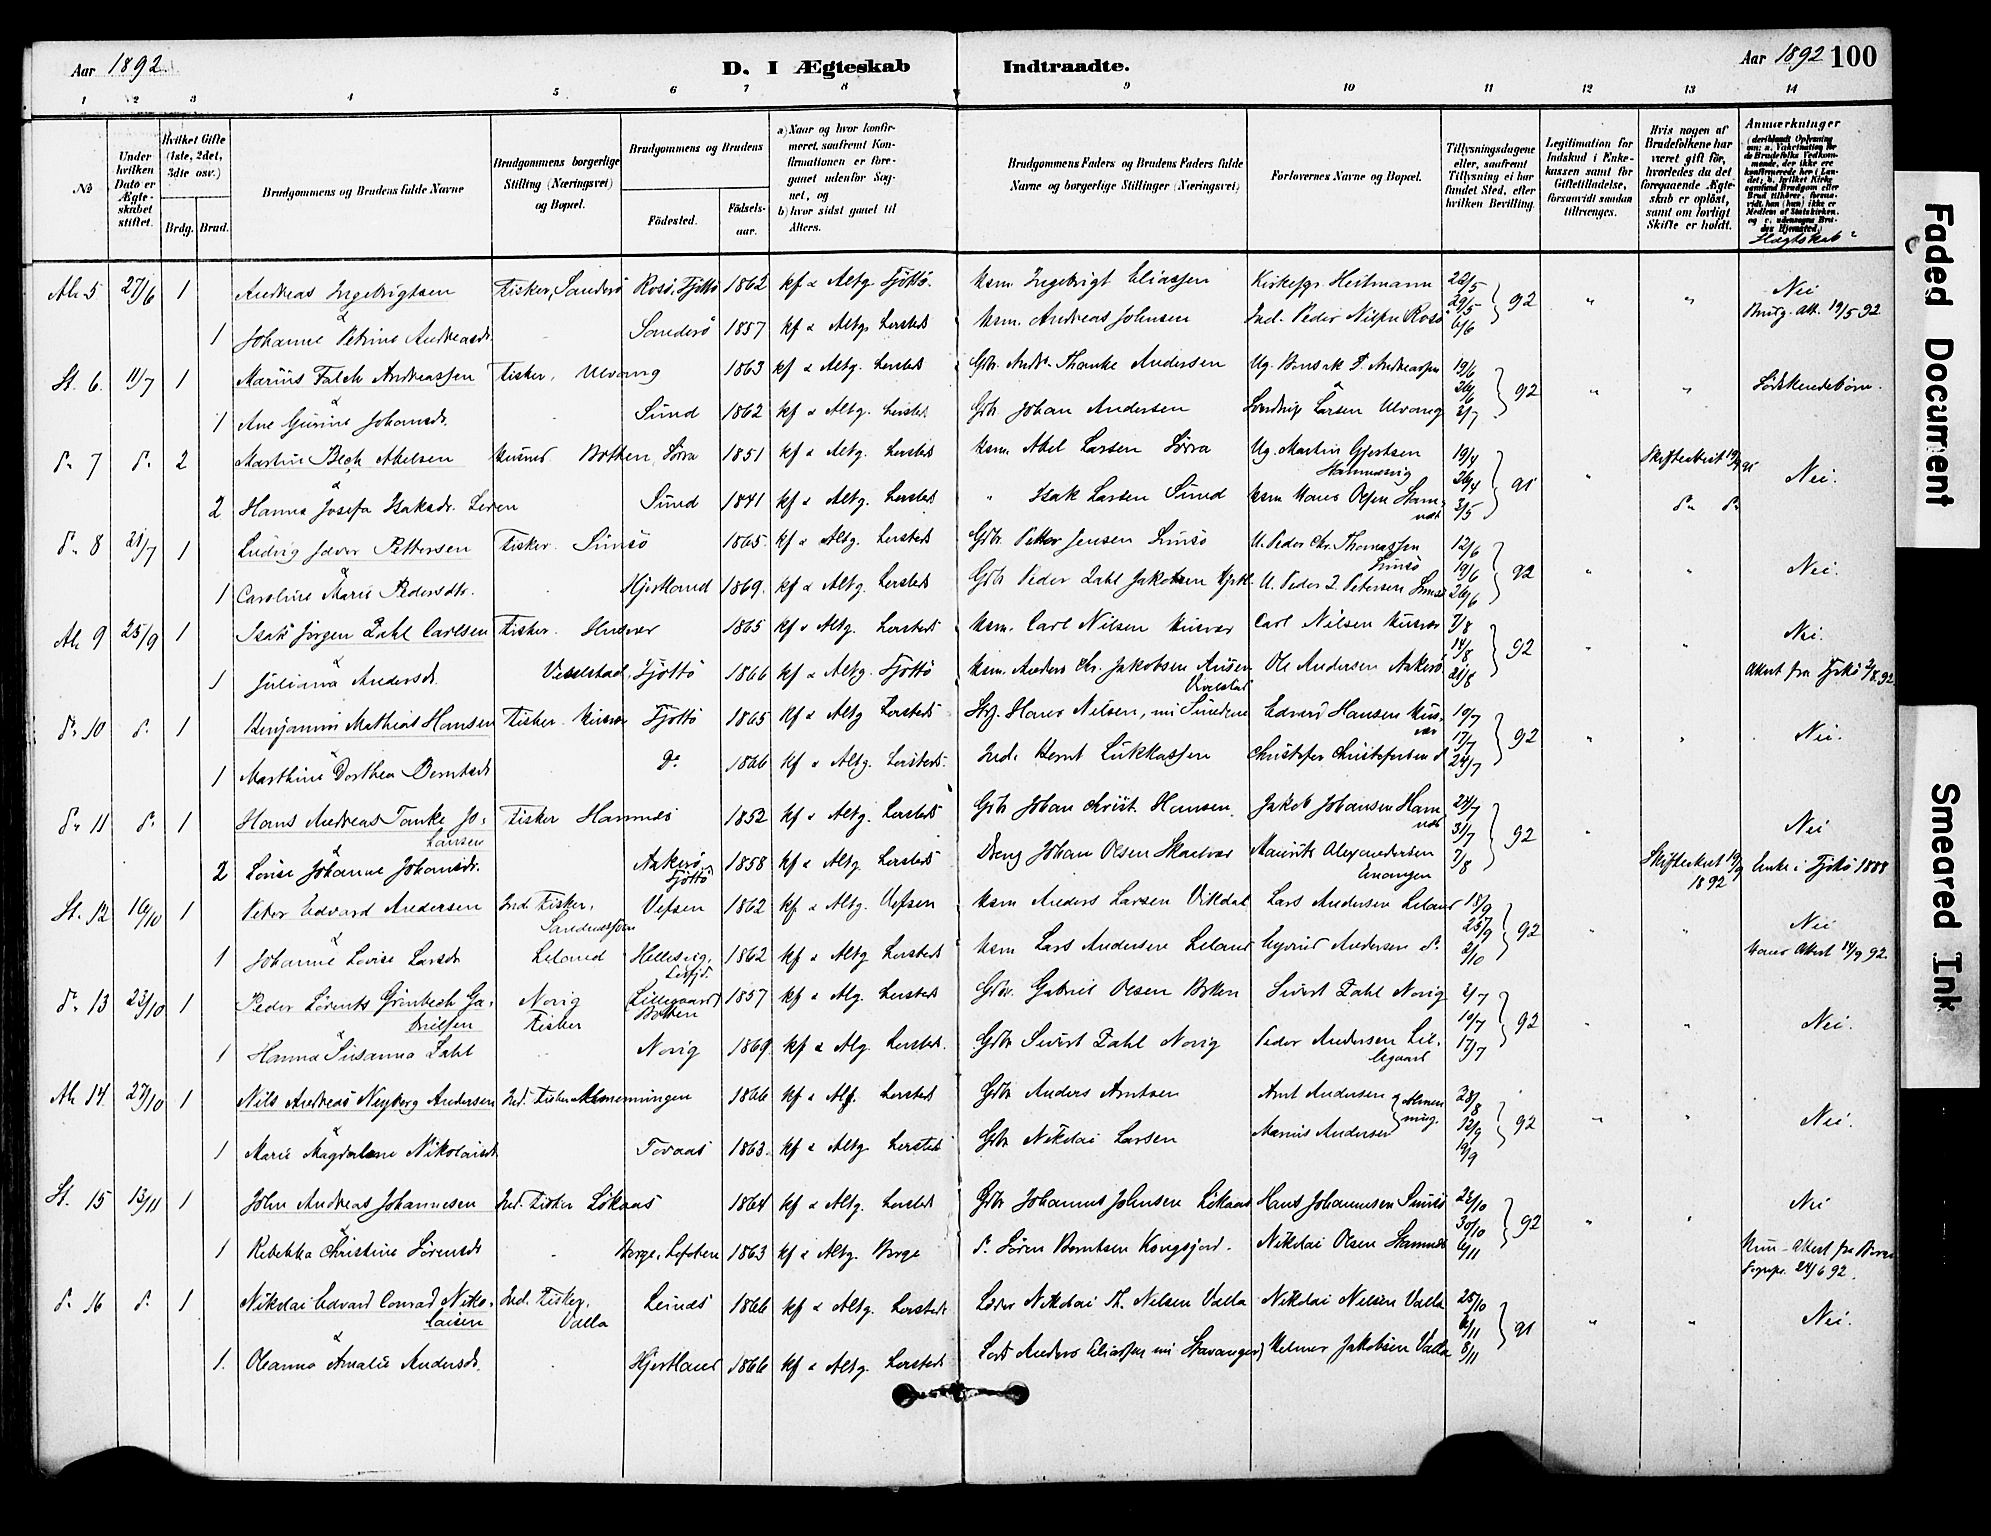 Aar 1892.
D. I Ægteskab Indtraadte.
Aar 1892 100
1 2 3 4 5 6 7 8 9 10 11 12 13 14
No
Under hvilken Dato er Ægteskabet stiftet.
Hvilket Gifte (1ste, 2det, 3die osv.)
Brdg. Brud.
Brudgommens og Brudens fulde Navne
Brudgommens borgerlige Stilling (Næringsvei) og Bopæl.
Brudgommens og Brudens
Födested.
Födsels-aar.
a) Naar og hvor konfirmeret, saafremt Konfirmationen er foregaaet udenfor Sognet, og
b) hvor sidst gaaet til Alters.
Brudgommens Faders og Brudens Faders fulde Navne og borgerlige Stillinger (Næringsvei)
Forlovernes Navne og Bopæl.
Tillysningsdagene eller, saafremt Tillysning ei har fundet Sted, efter hvilken Bevilling.
Legitimation for Indskud i Enkekassen samt for Giftetilladelse, forsaavidt saadan tiltrænges.
Hvis nogen af Brudefolkene har været gift för, hvorledes da det foregaaende Ægteskab er oplöst, samt om lovligt Skifte er holdt.
Anmærkninger
Slægtskab?
Al. 5 27/6 1 Andreas Ingebrigtsen Fisker, Sanderö Rosö, Tjöttö 1862 kf & Altg. Tjöttö. Hsm. Ingebrigt Eliassen Kirkesgr Heitmann 22/5 29/5 6/6 92 " " Nei
& 1 Johanne Petrine Andreasdr. Sanderö 1857 kf & Altg. Hersteds Hsm. Andreas Johnsen Ind. Peder Nilsen Rosö
St. 6. 11/7 1 Marius Falch Andreassen Fisker, Ulvang 1863 kf & Altg. Hersteds Gbr. Andr. Thanke Andersen 19/6 26/6 3/7 92 " " Södskendebörn.
& 1 Ane Gurine Johansdr. Sund 1862 kf & Altg. Hersteds Gbr Johan Andersen Larsen Ulvang
D. 7 D. 2 Martin Bech Abelsen Husmd Botten, Sörra 1851 kf & Altg. Hersteds Hsm. Abel Larsen Sörra Ug. Martin Gjertsen 19/4 26/4 3/5 91 " Nei.
& 2 Hanna Josefa Isaksdr. Sund 1841 kf & Altg. Hersteds " Isak Larsen Sund Hsm Hans Olsen
D. 8 21/7 1 Ludvig Javer Pettersen Fisker. Simsö 1865 kf & Altg. Hersteds Gbr. Petter Jensen Simsö U. Peder Chr. Thomassen Simsö 12/6 19/6 26/6 92 " " Nei.
& 1 Caroline Marie Pedersdtr. Hjertland 1869. kf & Altg. Hersteds Gbr Peder Zahl Jakobsen Hjertl. U. Peder Z. Petersen Simsö
Al 9 25/9 1 Isak Jörgen Zahl Carlsen Fisker. Husvær 1865 kf & Altg. Hersteds Hsm. Carl Nilsen Husvær Carl Nilsen Husvær 7/8 14/8 21/8 92 " " Nei.
& 1 Juliana Andersdr. Viselstad, Tjöttö 1866 kf & Altg. Tjöttö Hsm. Anders Chr. Jakobsen Ole Andersen Aakerö Attest fra Tjötö 2/8 92
D. 10 D. 1 Benjamin Mathias Hansen Fisker Husvær Tjöttö 1865 kf & Altg Hersteds Hans Nilsen, nu Sundene Edvard Hansen Husvær 10/7 17/7 24/7 92 " " Nei.
& 1 Marthine Dorthea Berntsdr Do 1866 kf & Altg. Hersteds. Ind. Bernt Lukkassen Christofer Christofersen D
D. 11 D. 1 Hans Andreas Tanke Johansen Fisker Hamnes 1852 kf & Altg. Hersteds Gbr Johan Christ. Hansen Jakob Johansen Hamnes 24/7 31/7 7/8 92 " Nei
& 2 Lovise Johanne Johansdr. Aakerö Tjöttö 1858 kf & Altg. Hersteds Johan Olsen Skaalvær Maurits Alexandersen Skifteattest 19/9 1892 Enke i Tjötö 1888
St. 12 16/10 1 Peter Edvard Andersen Ind. Fisker, Sandnessjöen Vefsen 1862 kf & Altg. Vefsen Hsm Anders Larsen Vikdal Lars Andersen Leland 18/9 25/9 2/10 92 " " Nei
& 1 Johanne Lovise Larsdr Leland Hellesvig, Leirfj. 1862 kf & Altg. Hersteds Hsm Lars Andersen Leland Andersen D. Hans Attest 14/9 92.
D. 13 23/10 1 Peder Lörents Grönbech Gabrielsen Novig Fisker (Lillegaard) Botten 1857 kf & Altg. Hersteds Gbr. Gabriel Olsen Botten Sivert Zahl Novig 3/7 10/7 17/7 92 " " Nei.
1 Hanna Susanna Zahl Novig 1869 kf & Altg. Hersteds. Gbr Sivert Zahl Novig Peder Andersen Lillegaard
Al 14. 27/10 1 Nils Andreas Neyberg Andersen Ind. Fisker Almenningen 1866 kf & Altg. Hersteds Gbr Anders Arntsen Arnt Andersen Almenning 28/8 12/9 19/9 92 " " Nei.
& 1 Marie Magdalene Nikolaisdr Tovaas 1863. kf & Altg. Hersteds Gbr Nikolai Larsen Marius Andersen
St. 15 13/11 1 John Andreas Johannesen Ind. Fisker Lökaas 1864 kf & Altg. Hersteds Gbr Johannes Johnsen Lökaas Hans Johannesen Simsö 23/10 30/10 6/11 92 " " Nei
& 1 Rebekka Christine Sörensdr Borge, Lofoten 1863 kf & Altg. Borge D. Sören Berntsen Kongsjord. Nikolai Olsen Attest fra Borge Sognepr. 24/6 92.
D. 16 D. 1 Nikolai Edvard Conrad Nikolaisen Ind. Fisker, Valla Leines 1866 kf & Altg. Hersteds Nikolai Th. Nilsen Valla Nikolai Nilsen Valla 25/10 1/11 8/11 91 " " Nei.
& 1. Oleanna Amalie Andersdr. Hjertland 1866 kf & Altg. Hersteds Anders Eliassen nu Stavanger) Helmer Jakobsen Valla
Faded Document
Smeared Ink